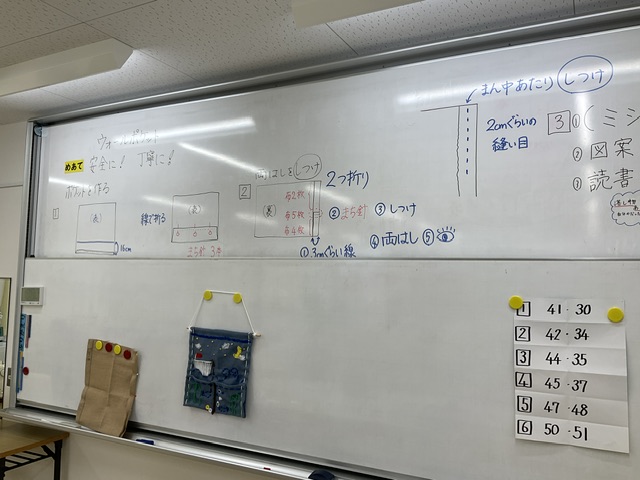 ウォールポケット
めあて 安全に! 丁寧に!
ポケットを作る
1
(表)
16cm
線で折る
(表)
まち針
2
両はしをしつけ
2つ折り
(裏)
各2枚
各5枚
各4枚
② まち針 ③ しつけ
④ 両はし ⑤
① 3cmぐらい線
まん中あたり しつけ
2cmぐらいの
縫い目
3 ① (ミシ
② 図案
③ 読書
1 41・30
2 42・34
3 44・35
4 45・37
5 47・48
6 50・51